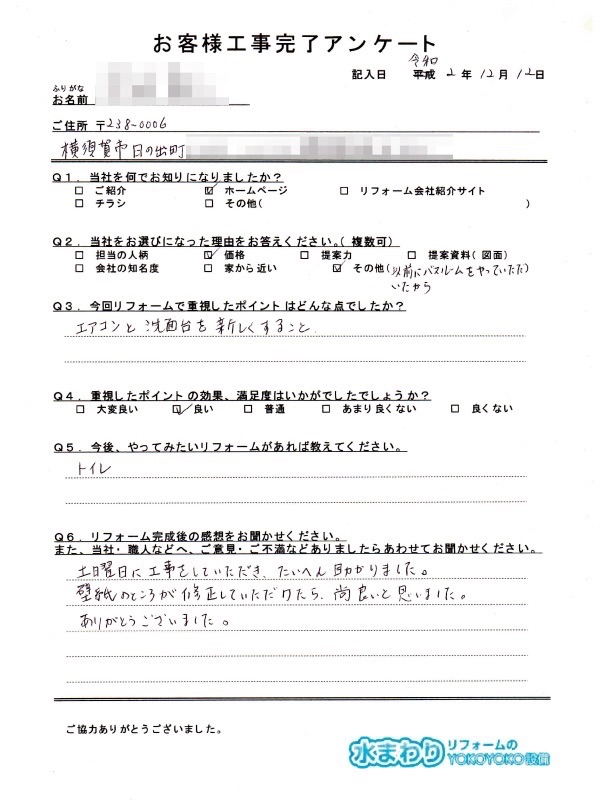 お客様工事完了アンケート
令和
記入日 平成 2 年 12 月 12 日
ふりがな
お名前
ご住所 〒238-0006
横須賀市日の出町
Q1．当社を何でお知りになりましたか？
□ ご紹介 ☑ ホームページ □ リフォーム会社紹介サイト
□ チラシ □ その他( )
Q2．当社をお選びになった理由をお答えください。( 複数可)
□ 担当の人柄 ☑ 価格 □ 提案力 □ 提案資料( 図面)
□ 会社の知名度 □ 家から近い ☑ その他(以前にバスルームをやっていただ)
いたから
Q3．今回リフォームで重視したポイントはどんな点でしたか？
エアコンと洗面台を新しくすること
Q4．重視したポイントの効果、満足度はいかがでしたでしょうか？
□ 大変良い ☑ 良い □ 普通 □ あまり良くない □ 良くない
Q5．今後、やってみたいリフォームがあれば教えてください。
トイレ
Q6．リフォーム完成後の感想をお聞かせください。
また、当社・職人などへ、ご意見・ご不満などありましたらあわせてお聞かせください。
土曜日に工事をしていただき、たいへん助かりました。
壁紙のところが修正していただけたら、尚良いと思いました。
ありがとうございました。
ご協力ありがとうございました。
水まわりリフォームの
YOKOYOKO設備